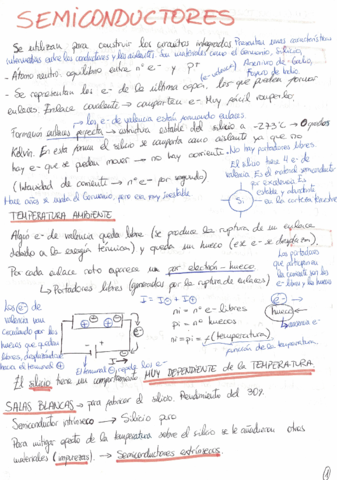 SEMICONDUCTORES
Se utilizan para construir los circuitos integrados. Presentan unas características
intermedias entre los conductores y los aislante. Son materiales como el Germanio, Silicio,
- Átomo neutro: equilibrio entre nº e- y p+. Arseniuro de Galio,
(e- valencia) Fosfuro de Indio.
- Se representan los e- de la última capa, los que pueden formar
enlaces. Enlace covalente → comparten e-. Muy fácil romperlo
los e- de valencia están formando enlaces.
Forman enlaces perfecta → estructura estable del silicio a -273ºC → 0 grados
Kelvin. En esta forma el silicio se comporta como aislante ya que no
hay e- que se puedan mover → no hay corriente. No hay portadores libres.
(Intensidad de corriente → nº e- por segundo)
El silicio tiene 4 e- de
valencia. Es el material semiconductor
por excelencia. Es
estable y abundante
en la corteza terrestre
Si
Hace años se usaba el Germanio, pero era muy inestable
TEMPERATURA AMBIENTE
Algún e- de valencia queda libre (se produce la ruptura de un enlace
debido a la energía térmica) y queda un hueco (ese e- se desplaza).
Por cada enlace roto aparece un par electrón-hueco.
↳ Portadores libres (generados por la ruptura de enlaces)
Los portadores
que
la corriente son los
e- libres y los huecos
Los e- de
valencia van
por los
huecos que quedan
libres, desplazándose
hacia el terminal +
I = I + I
ni = nº e- libres
pi = nº huecos
ni = pi = f (temperatura)
función de la temperatura
e-
hueco
I
El terminal ⊖ repele los e-
El silicio tiene un comportamiento MUY DEPENDIENTE de la TEMPERATURA.
SALAS BLANCAS → para fabricar el silicio. Rendimiento del 90%.
Semiconductor intrínseco → Silicio puro
Para mitigar efecto de la temperatura sobre el silicio se le añadieron otras
materiales (impurezas). → Semiconductores extrínsecos.
1